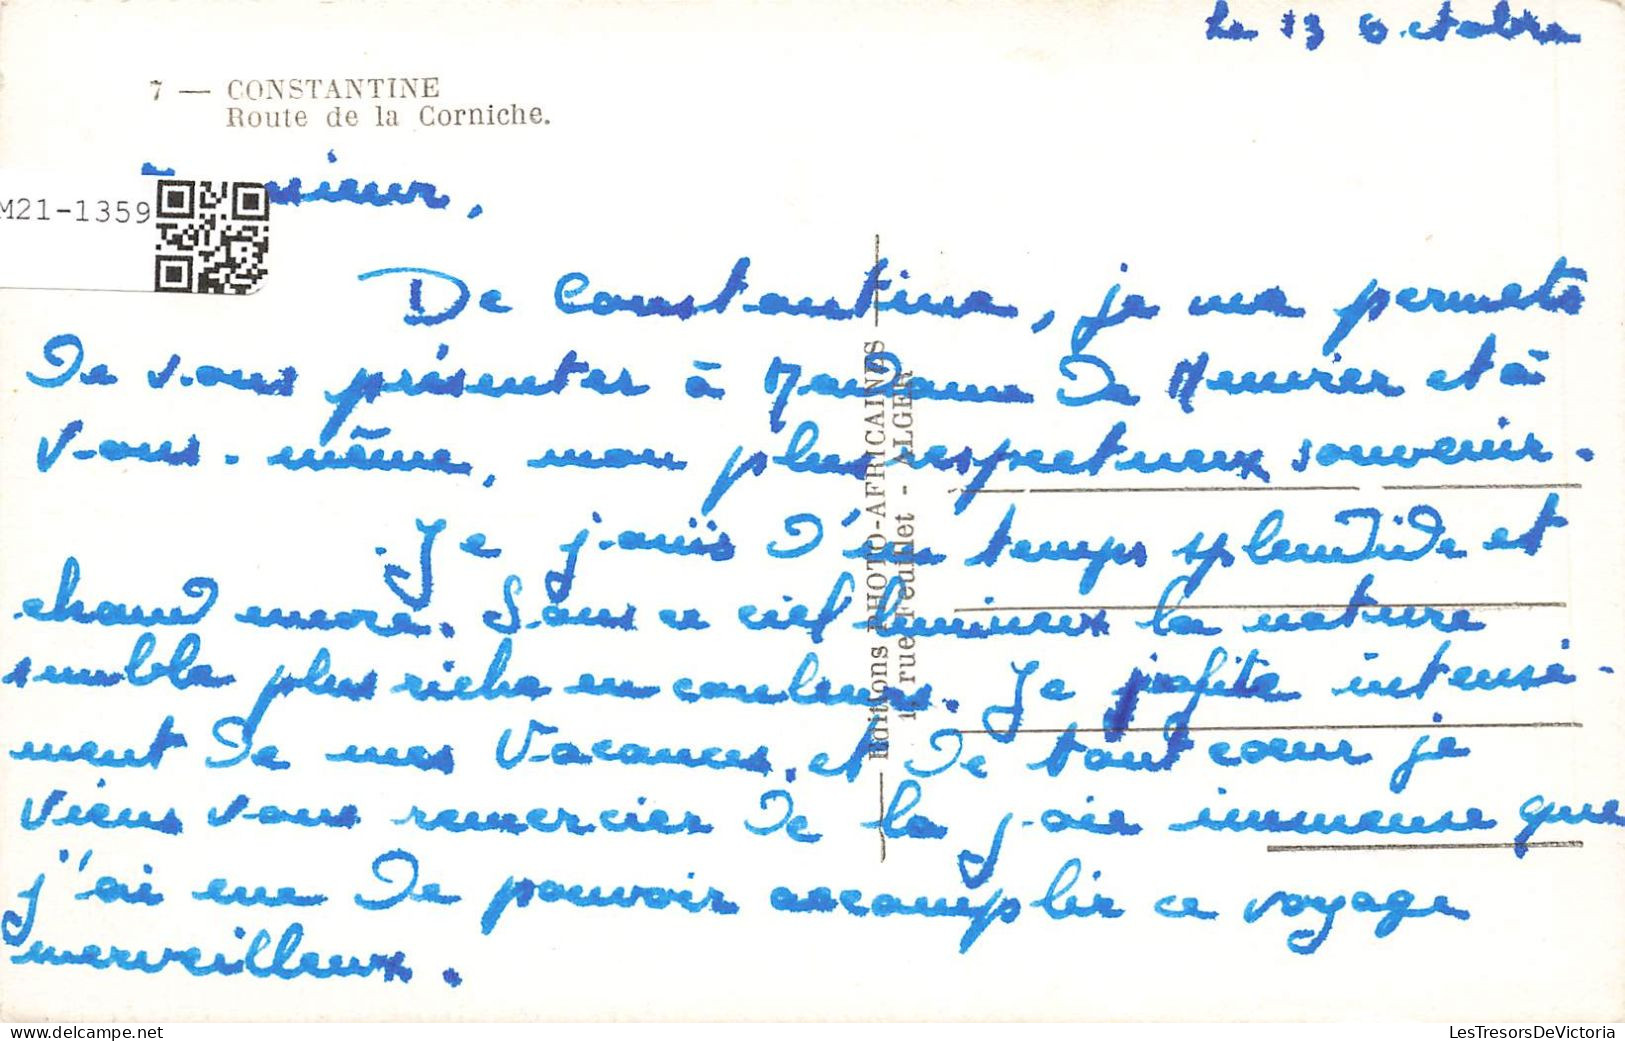 Le 13 Octobre
7 — CONSTANTINE
Route de la Corniche.
M21-1359
sieur,
De Constantine, je me permets
de vous présenter à Madame de et à
vous-même, mon plus respectueux souvenir.
Je jouis d'un temps splendide et
chaud encore. Sous ce ciel lumineux la nature
semble plus riche en couleurs. Je profite intensé-
ment de mes Vacances, et de tout cœur je
viens vous remercier de la joie immense que
j'ai eue de pouvoir accomplir ce voyage
merveilleux.
Editions PHOTO-AFRICAINES
1, rue Feuillet - ALGER
www.delcampe.net
LesTresorsDeVictoria